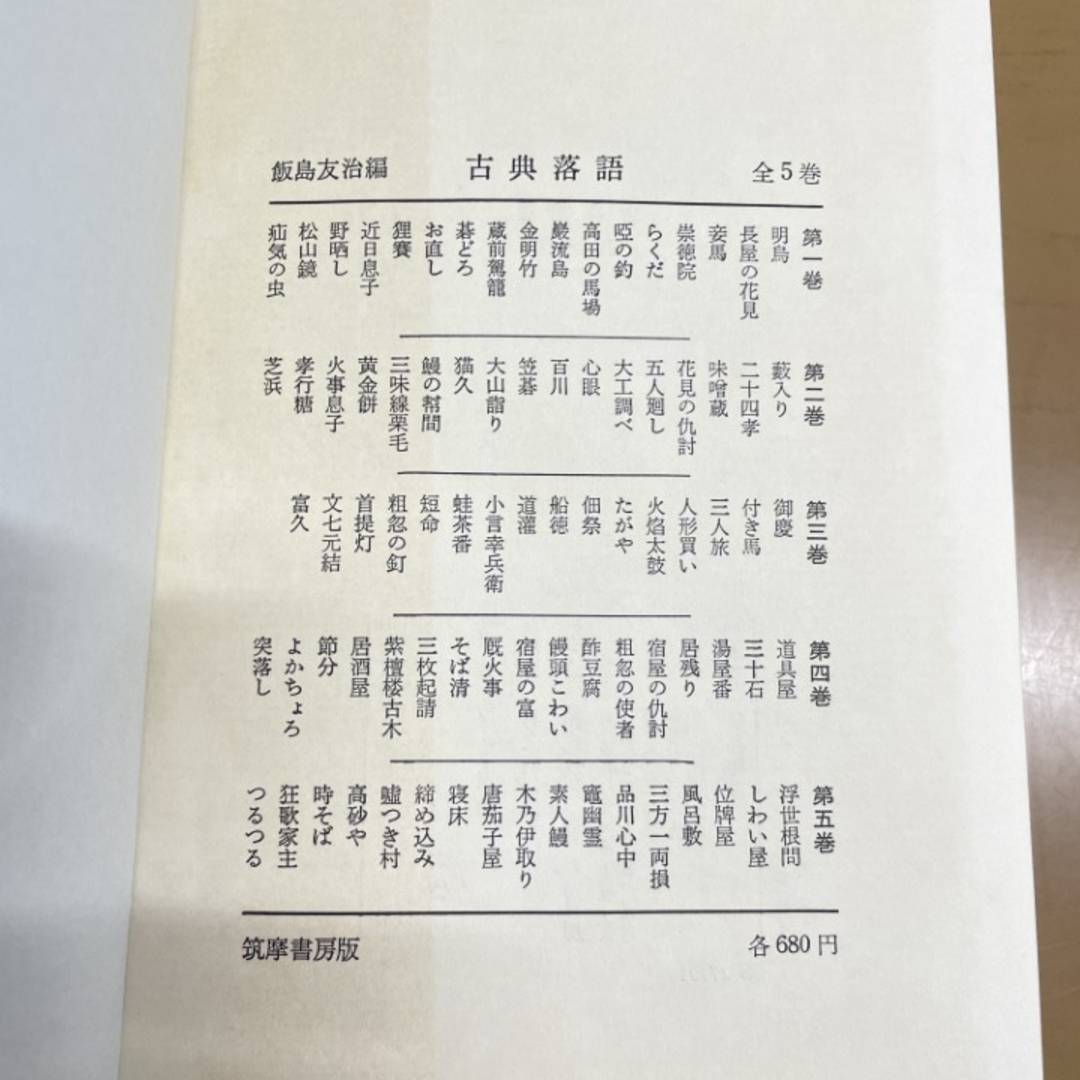 飯島友治編
古典落語
全5巻
第一巻
明烏
長屋の花見
妾馬
崇徳院
らくだ
啞の釣
高田の馬場
巌流島
金明竹
蔵前駕籠
碁どろ
お直し
狸賽
近日息子
野晒し
松山鏡
疝気の虫
第二巻
藪入り
二十四孝
味噌蔵
花見の仇討
五人廻し
大工調べ
心眼
百川
笠碁
大山詣り
猫久
鰻の幇間
三味線栗毛
黄金餅
火事息子
孝行糖
芝浜
第三巻
御慶
付き馬
三人旅
人形買い
火焰太鼓
たがや
佃祭
船徳
道灌
小言幸兵衛
蛙茶番
短命
粗忽の釘
首提灯
文七元結
富久
第四巻
道具屋
三十石
湯屋番
居残り
宿屋の仇討
粗忽の使者
酢豆腐
饅頭こわい
宿屋の富
厩火事
そば清
三枚起請
紫檀楼古木
居酒屋
節分
よかちょろ
突落し
第五巻
浮世根問
しわい屋
位牌屋
風呂敷
三方一両損
品川心中
竈幽霊
素人鰻
木乃伊取り
唐茄子屋
寝床
締め込み
嘘つき村
高砂や
時そば
狂歌家主
つるつる
筑摩書房版
各680円